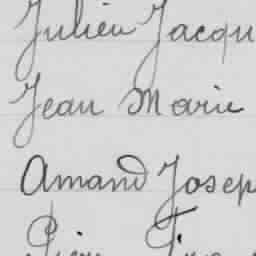 Julien Jacqu
Jean Marie
Amand Josep